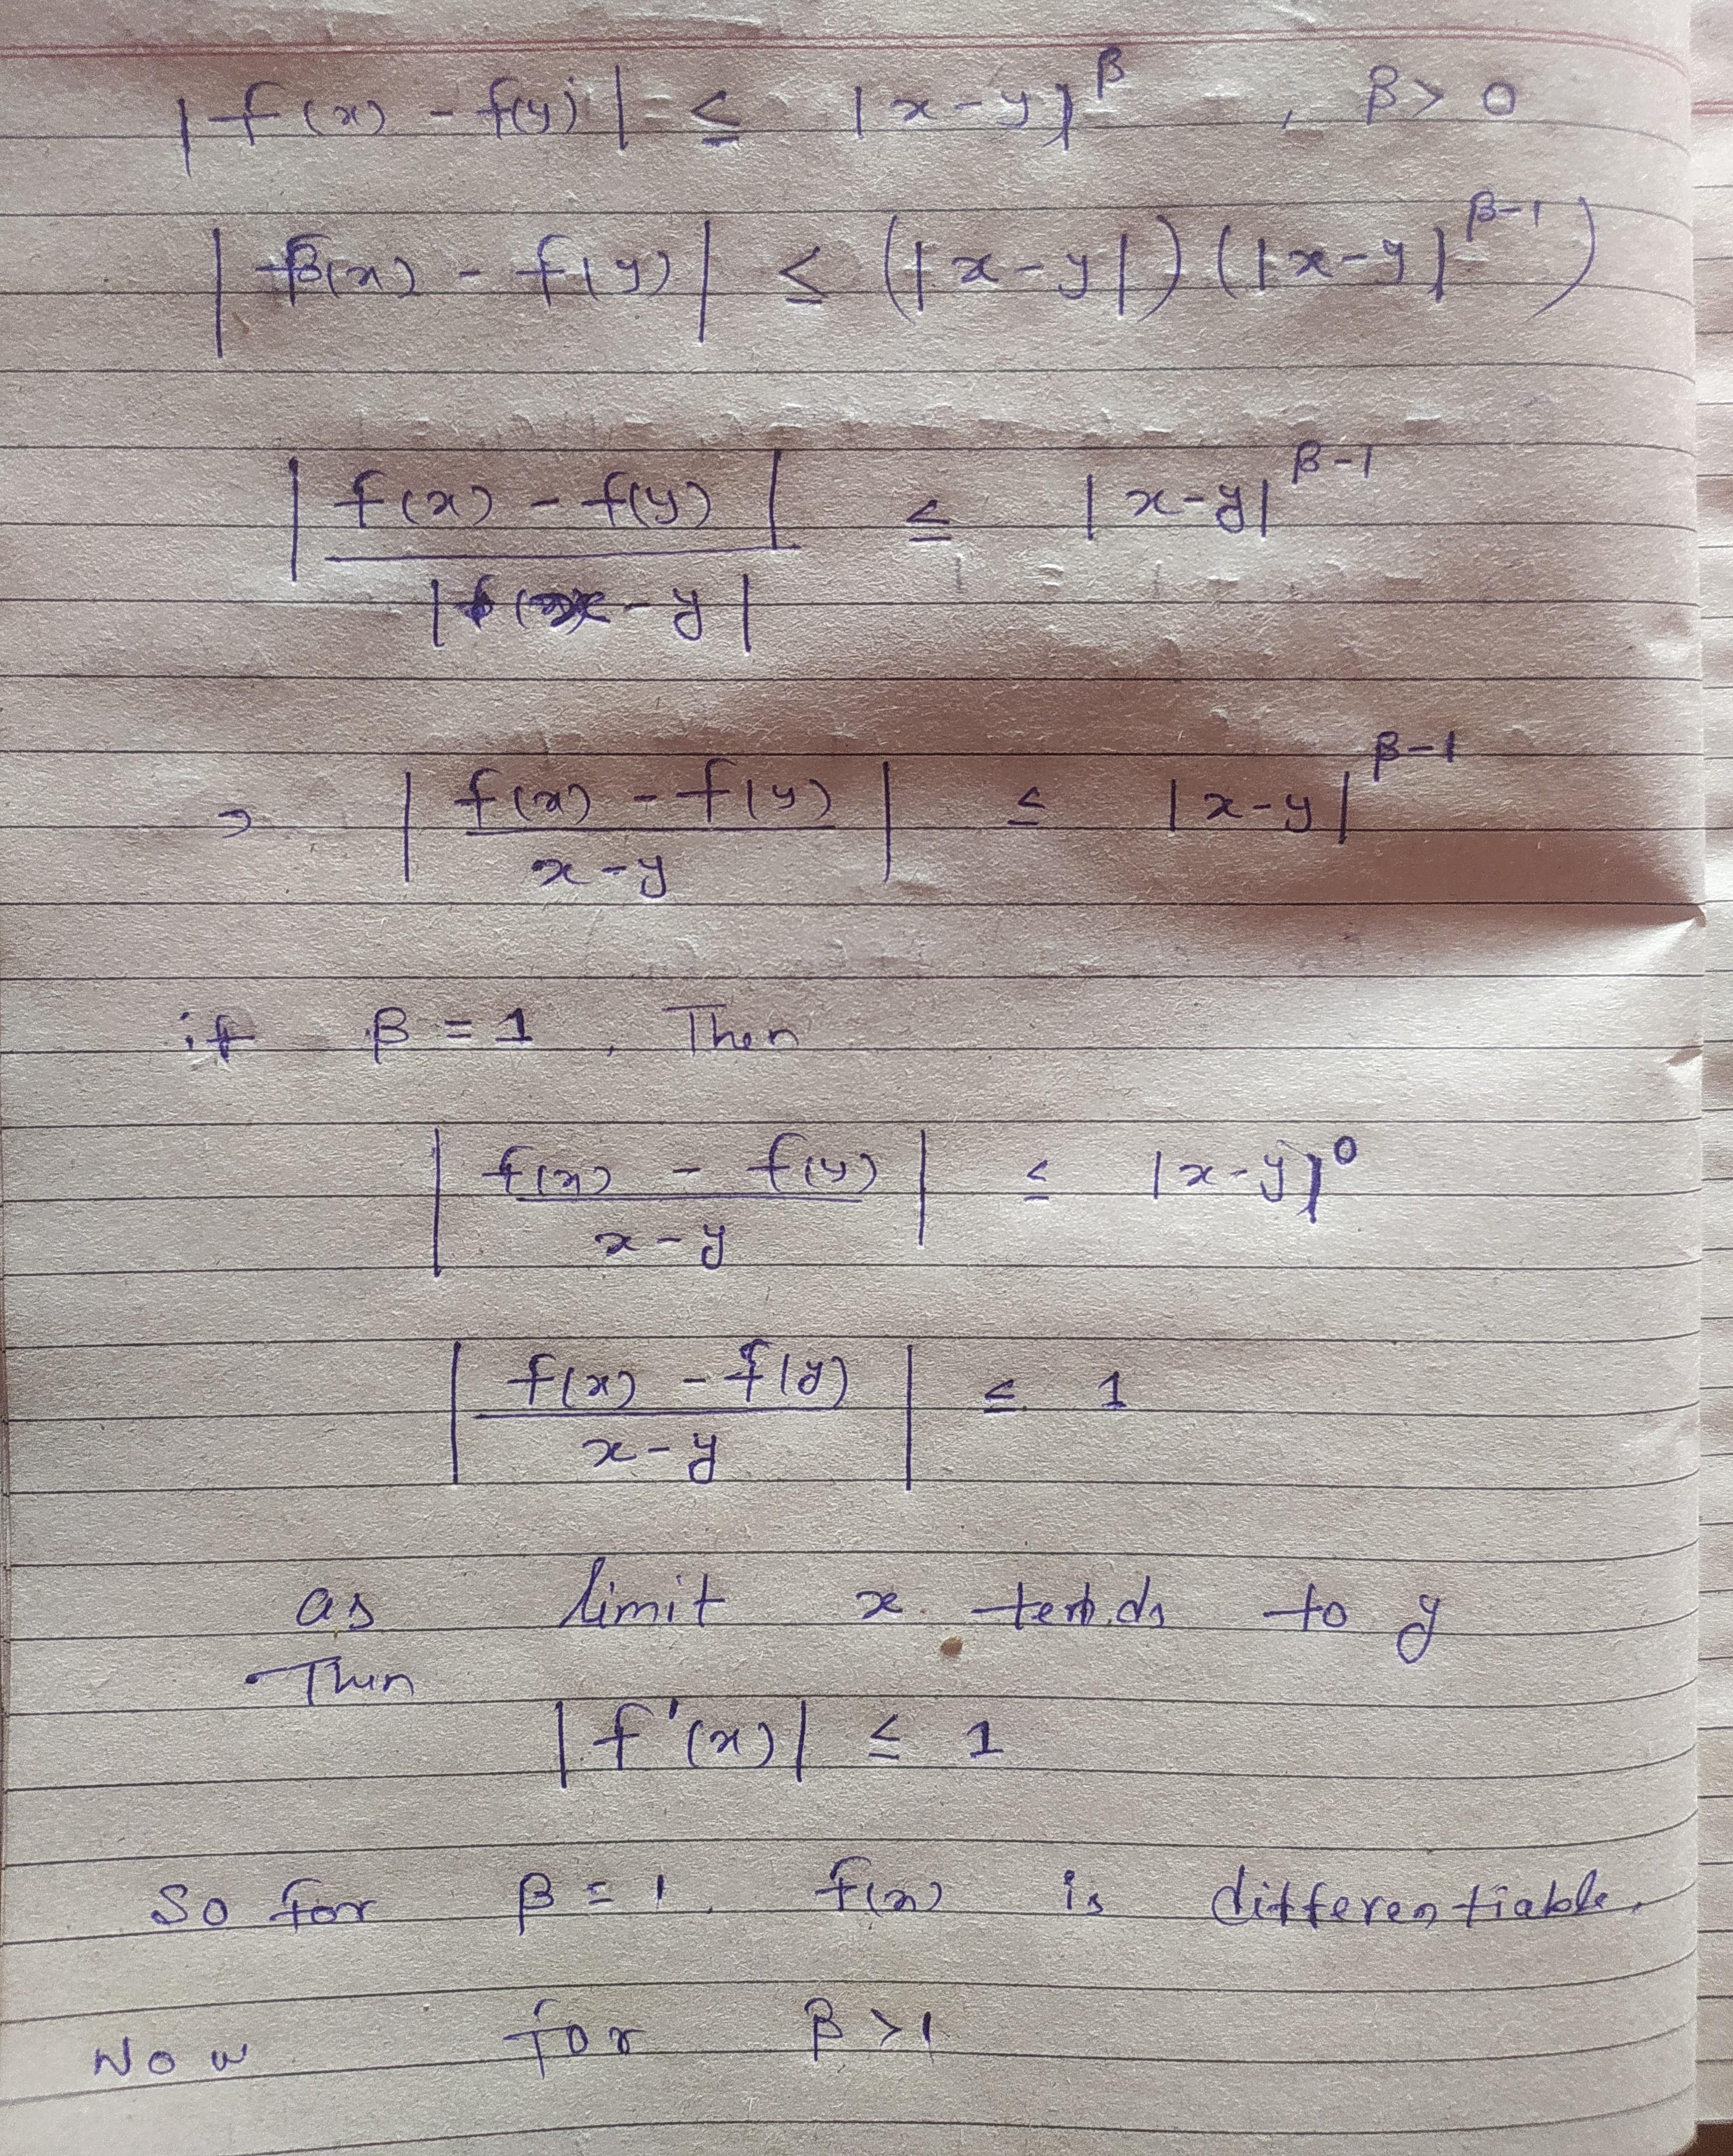 |f(x) - f(y)| ≤ |x-y|^β , β > 0
|f(x) - f(y)| ≤ (|x-y|) (|x-y|^β-1)
|f(x) - f(y)| ≤ |x-y|^β-1
|x-y|
⇒ |f(x) - f(y)| ≤ |x-y|^β-1
x-y
if β = 1, Then
|f(x) - f(y)| ≤ |x-y|^0
x-y
|f(x) - f(y)| ≤ 1
x-y
as limit x tends to y
Then
|f'(x)| ≤ 1
So for β = 1. f(x) is differentiable.
Now for β > 1